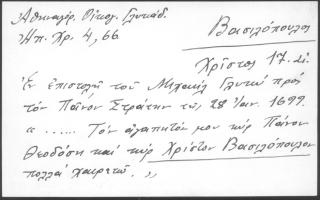 Ἀθηναγόρ. Οἰκογ. Γλυκάδ.
Ἠπ. Χρ. 4, 66.
Βασιλόπουλος
Χρίστος 17. αἰ.
Ἐν ἐπιστολῇ τοῦ Μιχαήλ Γλυκῦ πρός
τόν Πᾶνον Στράτην τῇ 28 Ἰαν. 1699.
« ...... Τόν ἀγαπητόν μου κύρ Πάνον
Θεοδόση καί κύρ Χρίστον Βασιλόπουλον
πολλά χαιρετῶ. »